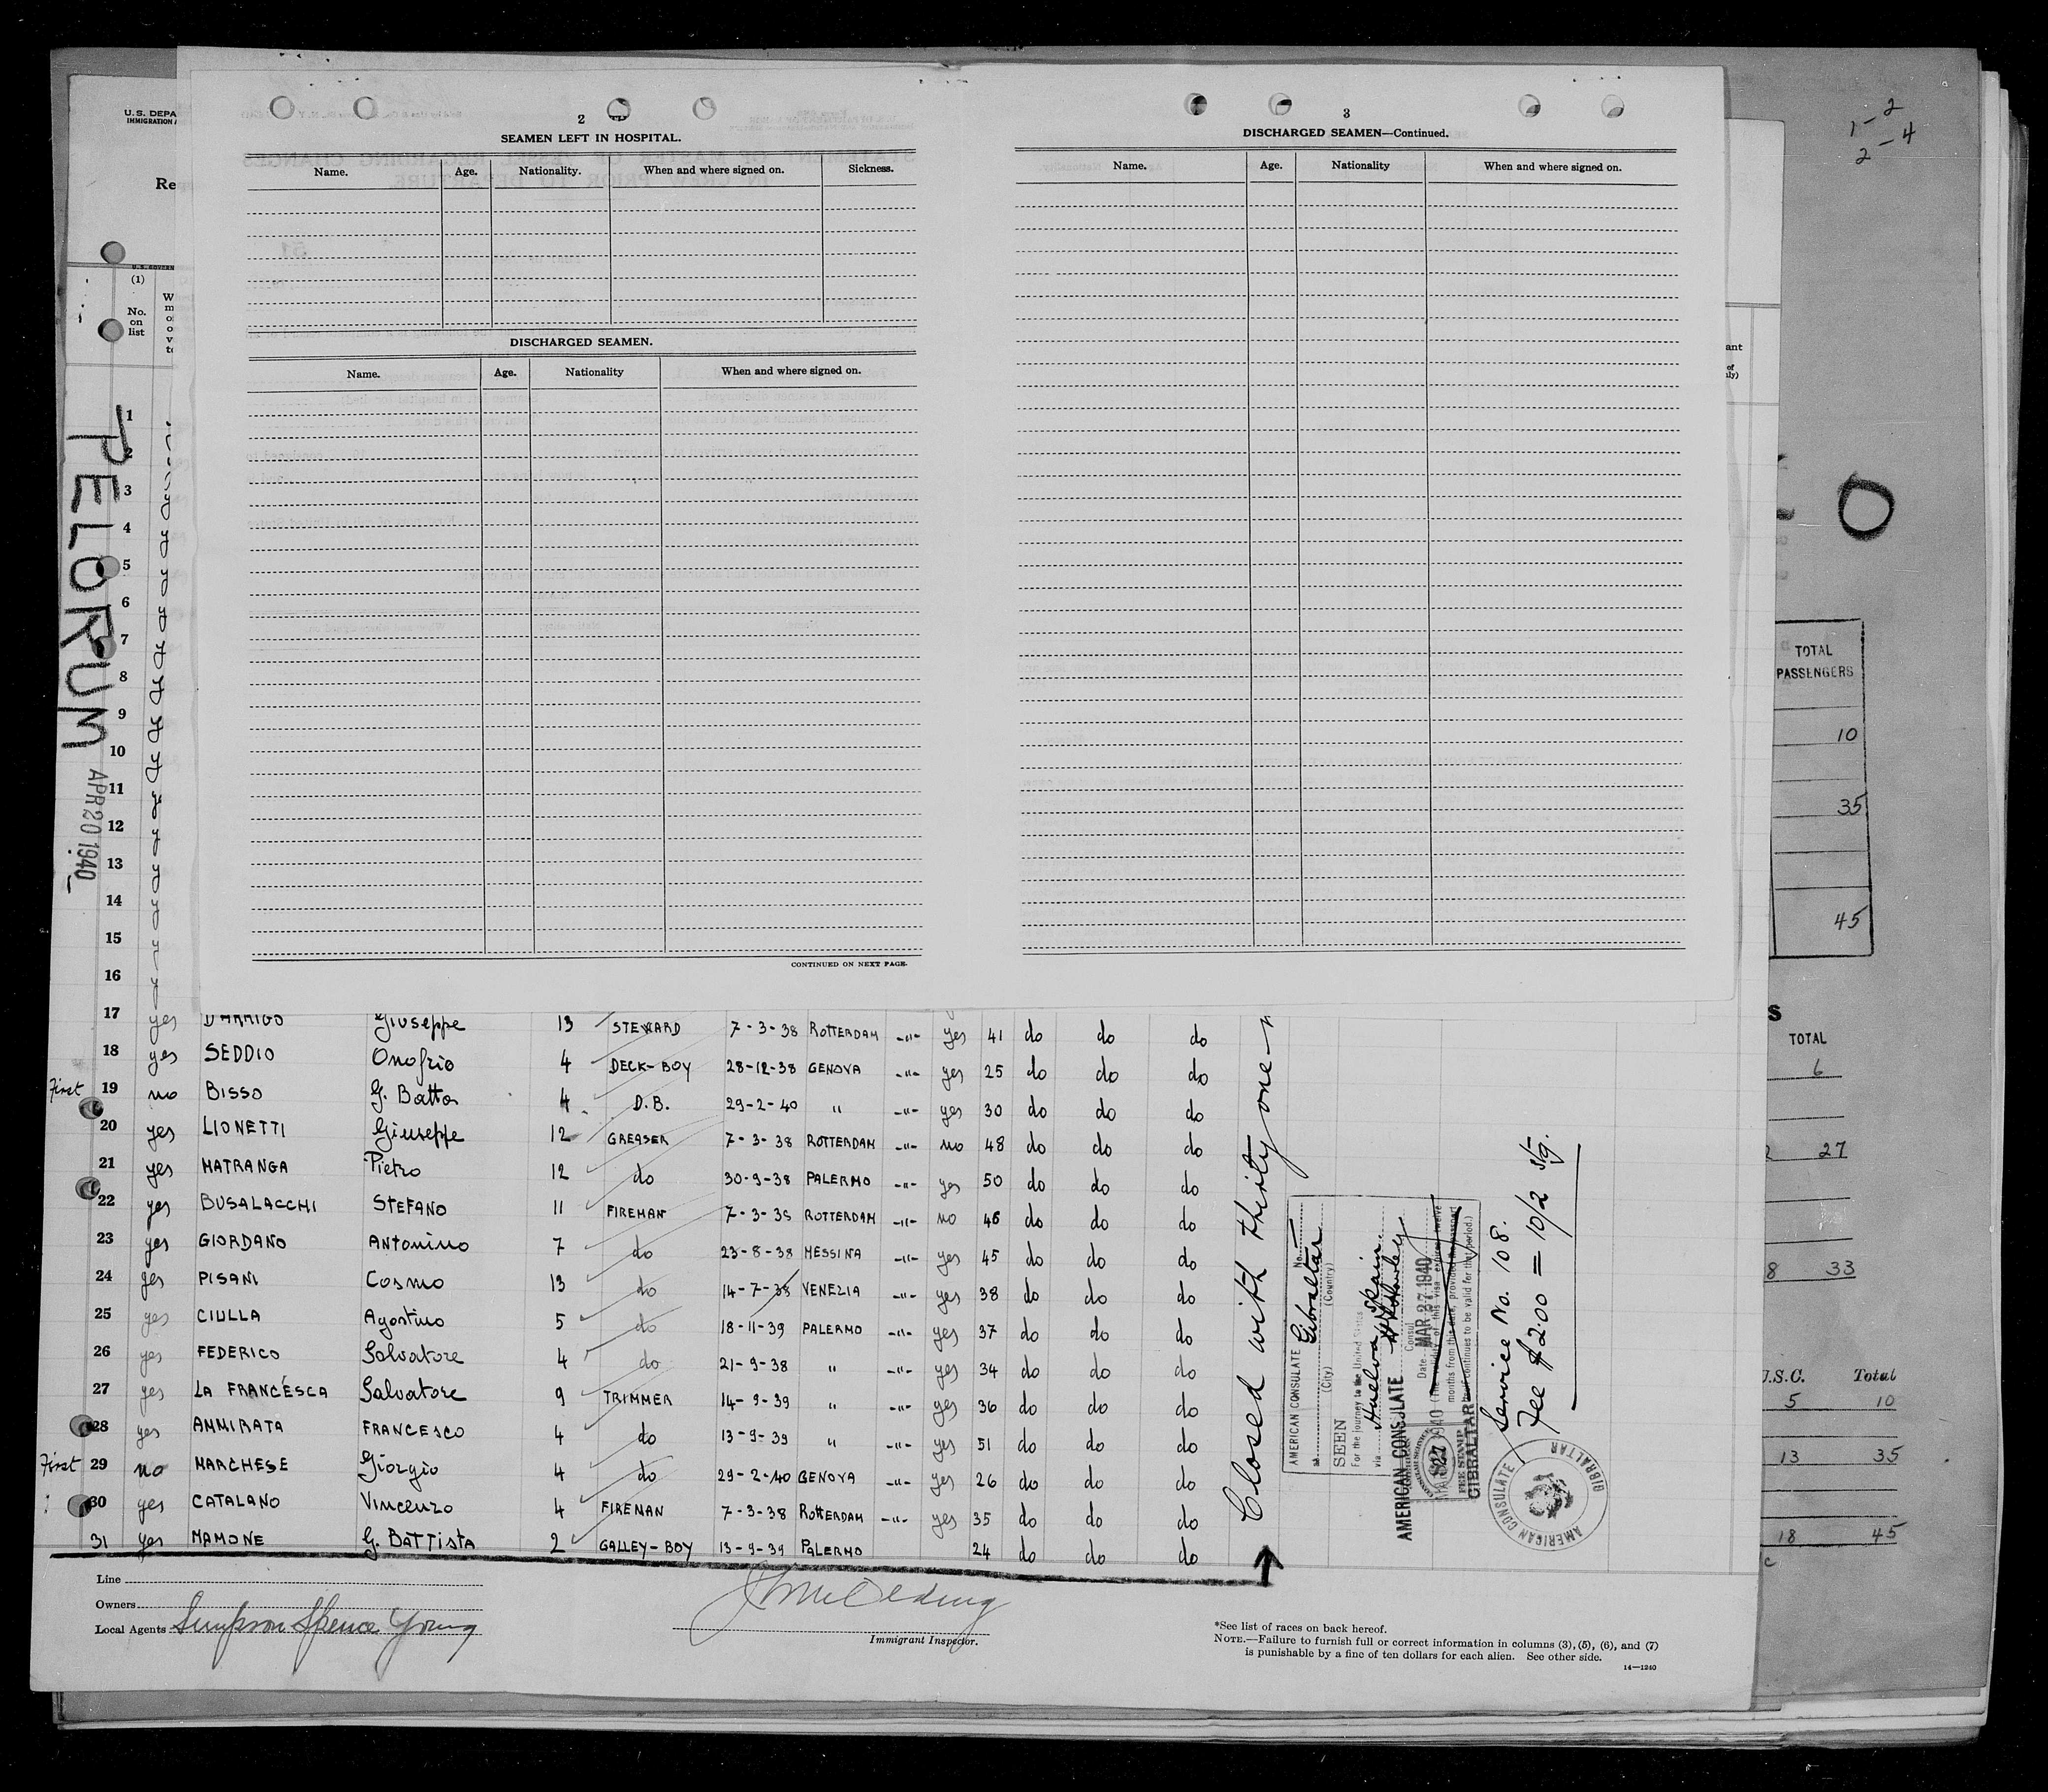 2
SEAMEN LEFT IN HOSPITAL.
Name. Age. Nationality. When and where signed on. Sickness.
DISCHARGED SEAMEN.
Name. Age. Nationality When and where signed on.
CONTINUED ON NEXT PAGE.
3
DISCHARGED SEAMEN—Continued.
Name. Age. Nationality When and where signed on.
1 - 2
2 - 4
O
U.S. DEPA
IMMIGRATION A
Re
U.S. GOVERN
(1)
No.
on
list
PELORUM
APR 20 1940
1
2
3
4
5
6
7
8
9
10
11
12
13
14
15
16
17 yes D'ARRIGO Giuseppe 13 STEWARD 7-3-38 ROTTERDAM -"- yes 41 do do do
18 yes SEDDIO Onofrio 4 DECK-BOY 28-12-38 GENOVA -"- yes 25 do do do
First 19 no BISSO G. Batta 4 D.B. 29-2-40 " -"- yes 30 do do do
20 yes LIONETTI Giuseppe 12 GREASER 7-3-38 ROTTERDAM -"- no 48 do do do
21 yes MATRANGA Pietro 12 do 30-9-38 PALERMO -"- yes 50 do do do
22 yes BUSALACCHI STEFANO 11 FIREMAN 7-3-38 ROTTERDAM -"- no 46 do do do
23 yes GIORDANO Antonino 7 do 23-8-38 MESSINA -"- yes 45 do do do
24 yes PISANI Cosmo 13 do 14-7-38 VENEZIA -"- yes 38 do do do
25 yes CIULLA Agostino 5 do 18-11-39 PALERMO -"- yes 37 do do do
26 yes FEDERICO Salvatore 4 do 21-9-38 " -"- yes 34 do do do
27 yes LA FRANCESCA Salvatore 9 TRIMMER 14-9-39 " -"- yes 36 do do do
28 yes AMMIRATA FRANCESCO 4 do 13-9-39 " -"- yes 51 do do do
First 29 no MARCHESE Giorgio 4 do 29-2-40 GENOVA -"- yes 26 do do do
30 yes CATALANO Vincenzo 4 FIREMAN 7-3-38 ROTTERDAM -"- yes 35 do do do
31 yes MAMONE G. BATTISTA 2 GALLEY-BOY 13-9-39 PALERMO 24 do do do
Closed with thirity one
AMERICAN CONSULATE No.
at Gibraltar
(City) (Country)
SEEN
For the journey to the United States
via Huelva Spain.
Consul
Date MAR 27 1940
AMERICAN CONSULATE
FEE STAMP
GIBRALTAR
Service No. 108.
Fee $2.00 = 10/2 stg.
AMERICAN CONSULATE
GIBRALTAR
Line
Owners
Local Agents Simpson Spence Young
Immigrant Inspector.
*See list of races on back hereof.
NOTE.—Failure to furnish full or correct information in columns (3), (5), (6), and (7)
is punishable by a fine of ten dollars for each alien. See other side.
14—1240
TOTAL
PASSENGERS
10
35
45
S
TOTAL
6
27
33
U.S.C. Total
5 10
13 35
18 45